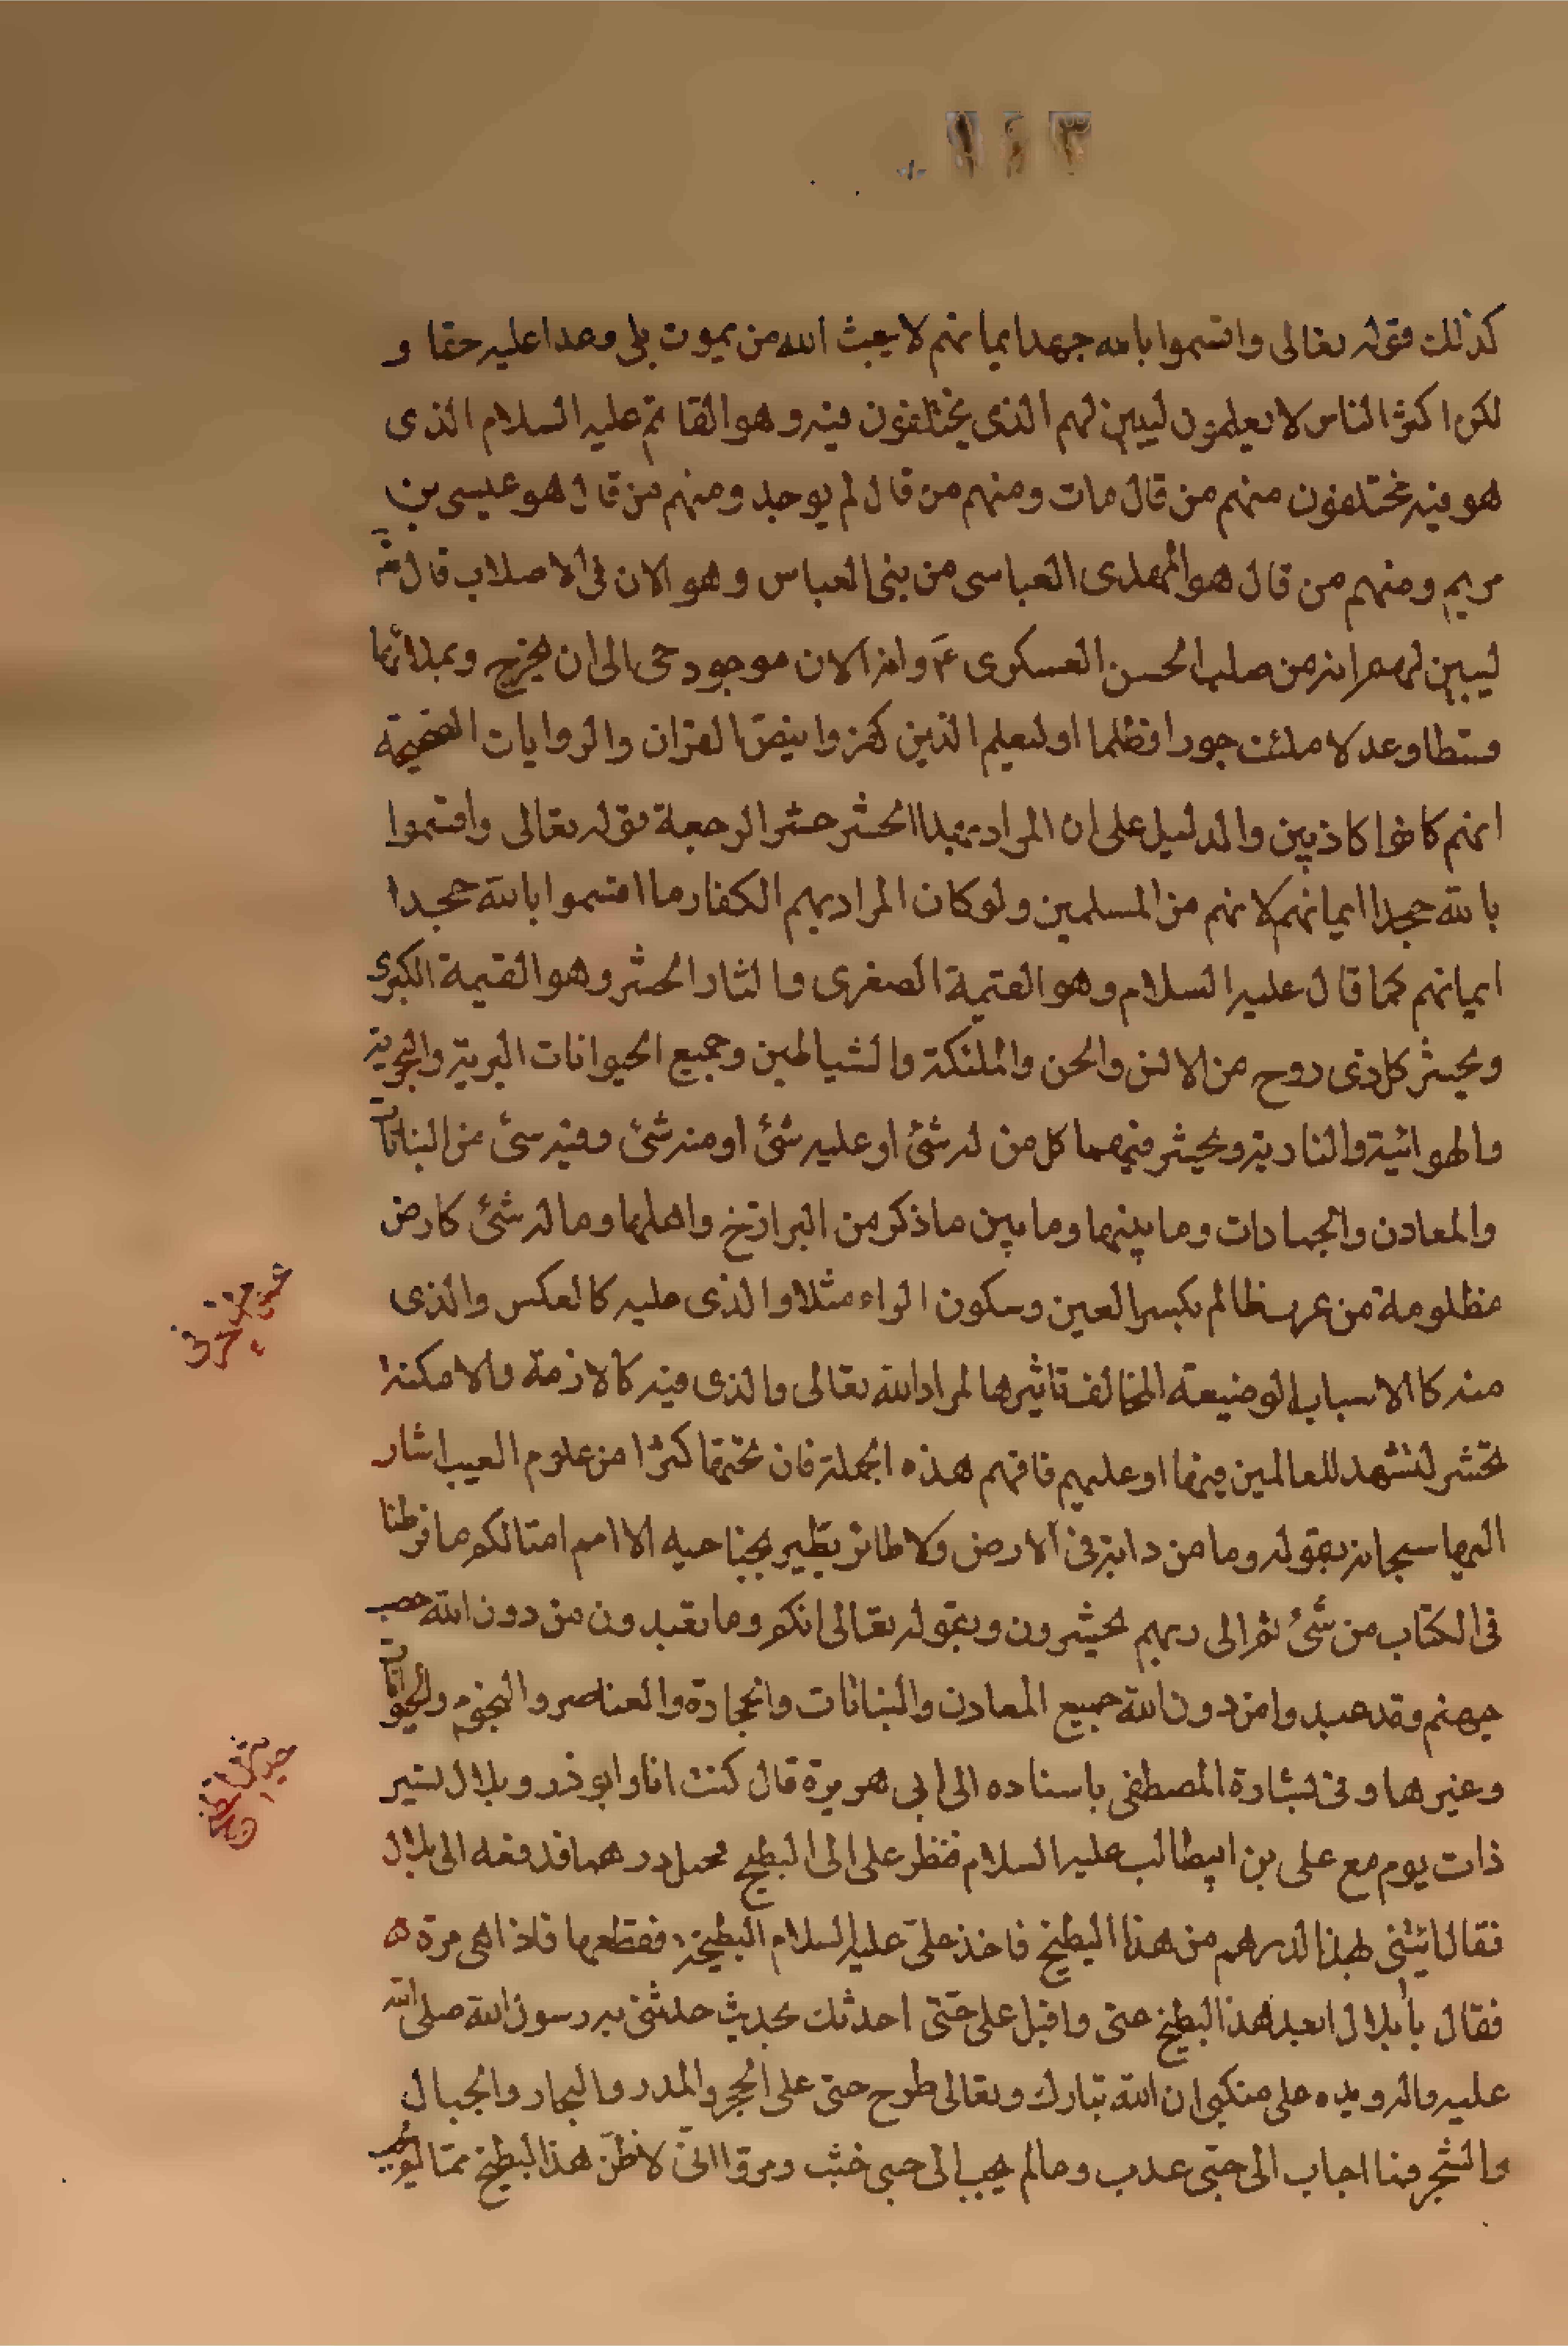 كذلك فقوله تعالى واقسموا بالله جهد ايمانهم لا يبعث الله من يموت بلى وعدا عليه حقا و
لكن اكثر الناس لا يعلمون ليبين لهم الذى يختلفون فيه وهو القائم عليه السلام الذى
هو فيه مختلفون منهم من قال مات ومنهم من قال لم يوجد ومنهم من قال هو عيسى بن
مريم ومنهم من قال هو المهدى العباسى من بنى العباس وهو الان فى الاصلاب قال
ليبين لهم انه من صلب الحسن العسكرى ع وانه الان موجود حى الى ان يخرج ويملائها
قسطا وعدلا ملئت جورا فظلما اوليعلم الذين كفروا بنص القران والروايات الصحيحة
انهم كانوا كاذبين والدليل على ان المراد بهذا الحشر حشر الرجعة قوله تعالى واقسموا
بالله جهدا ايمانهم لانهم من المسلمين ولو كان المراد بهم الكفار ما اقسموا بالله جهدا
ايمانهم كما قال عليه السلام وهو القيمة الصغرى والثار الحشر وهو القيمة الكبرى
ويحشر كل ذى روح من الانس والجن والملئكة والشياطين وجميع الحيوانات البرية والبحرية
والهوائية والنارية ويحشر فيهما كل من له شئ او عليه شئ او منه شئ وفيه شئ من النباتات
والمعادن والجمادات وما بينهما وما بين ما ذكر من البرازخ واهلها وما له شئ كارض
مظلومة من عرب ظالم بكسر العين وسكون الراء مثلا والذى عليه كالعكس والذى
منه كالاسباب الوضيعة المخالف تاثيرها لمراد الله تعالى والذى فيه كالازمة والامكنة
تحشر لتشهد للعالمين فيها او عليهم فافهم هذه الجملة فان تحتها كثرا من علوم الغيب اشار
اليها سبحانه بقوله وما من دابة فى الارض ولا طائر يطير بجناحيه الا امم امثالكم ما فرطنا
فى الكتاب من شئ ثم الى ربهم يحشرون وبقوله تعالى انكم وما تعبدون من دون الله حصب
جهنم وقد عبدوا من دون الله جميع المعادن والنباتات والحجارة والعناصر والنجوم والحيوانات
وغيرها وفى بشارة المصطفى باسناده الى ابى هريرة قال كنت انا وابو ذر وبلال نسير
ذات يوم مع على بن ابيطالب عليه السلام فنظر على الى البطيخ فحل درهما فدفعه الى بلال
فقال ائتنى بهذا الدرهم من هذا البطيخ فاخذ على عليه السلام البطيخة فقطعها فاذا هى مرة
فقال يا بلال ابعد هذا البطيخ عنى واقبل على حتى احدثك بحديث حدثنى به رسول الله صلى الله
عليه واله ويده على منكبى ان الله تبارك وتعالى طرح حبى على الحجر والمدر والبحار والجبال
والشجر فما اجاب الى حبى عذب وما لم يجب الى حبى خبث ومر وانى لاظن هذا البطيخ مما لم يجب